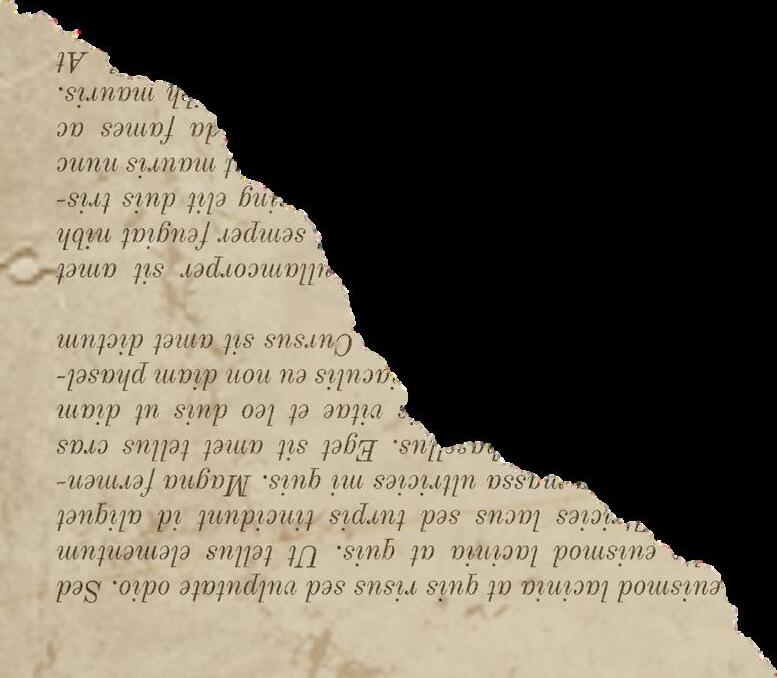 euismod lacinia at quis risus sed vulputate odio. Sed
euismod lacinia at quis. Ut tellus elementum
lacus sed turpis tincidunt id aliquet
massa ultricies mi quis. Magna fermen-
Eget sit amet tellus cras
vitae et leo duis ut diam
eu non diam phasel-
Cursus sit amet dictum
ullamcorper sit amet
semper feugiat nibh
elit duis tris-
mauris nunc
fames ac
mauris.
At